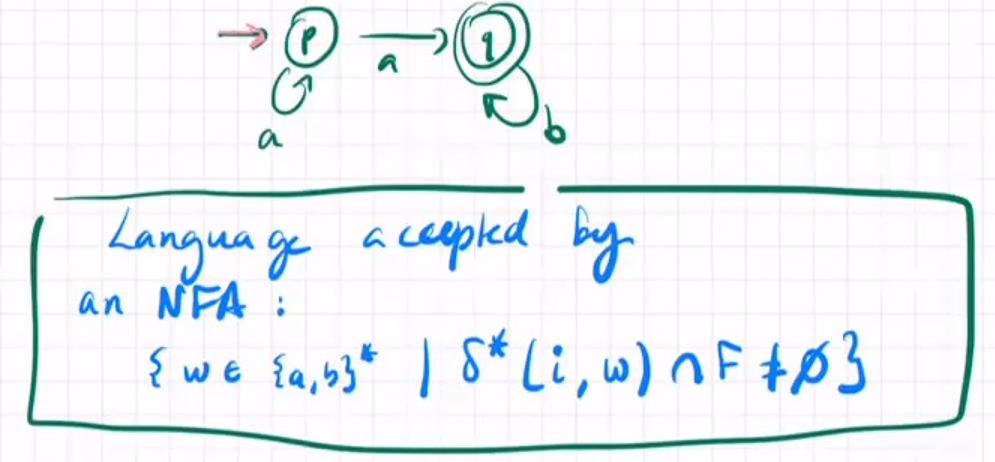 p a q
a b
Language accepted by
an NFA :
{ w ∈ {a,b}* | δ* (i, w) ∩ F ≠ ∅ }